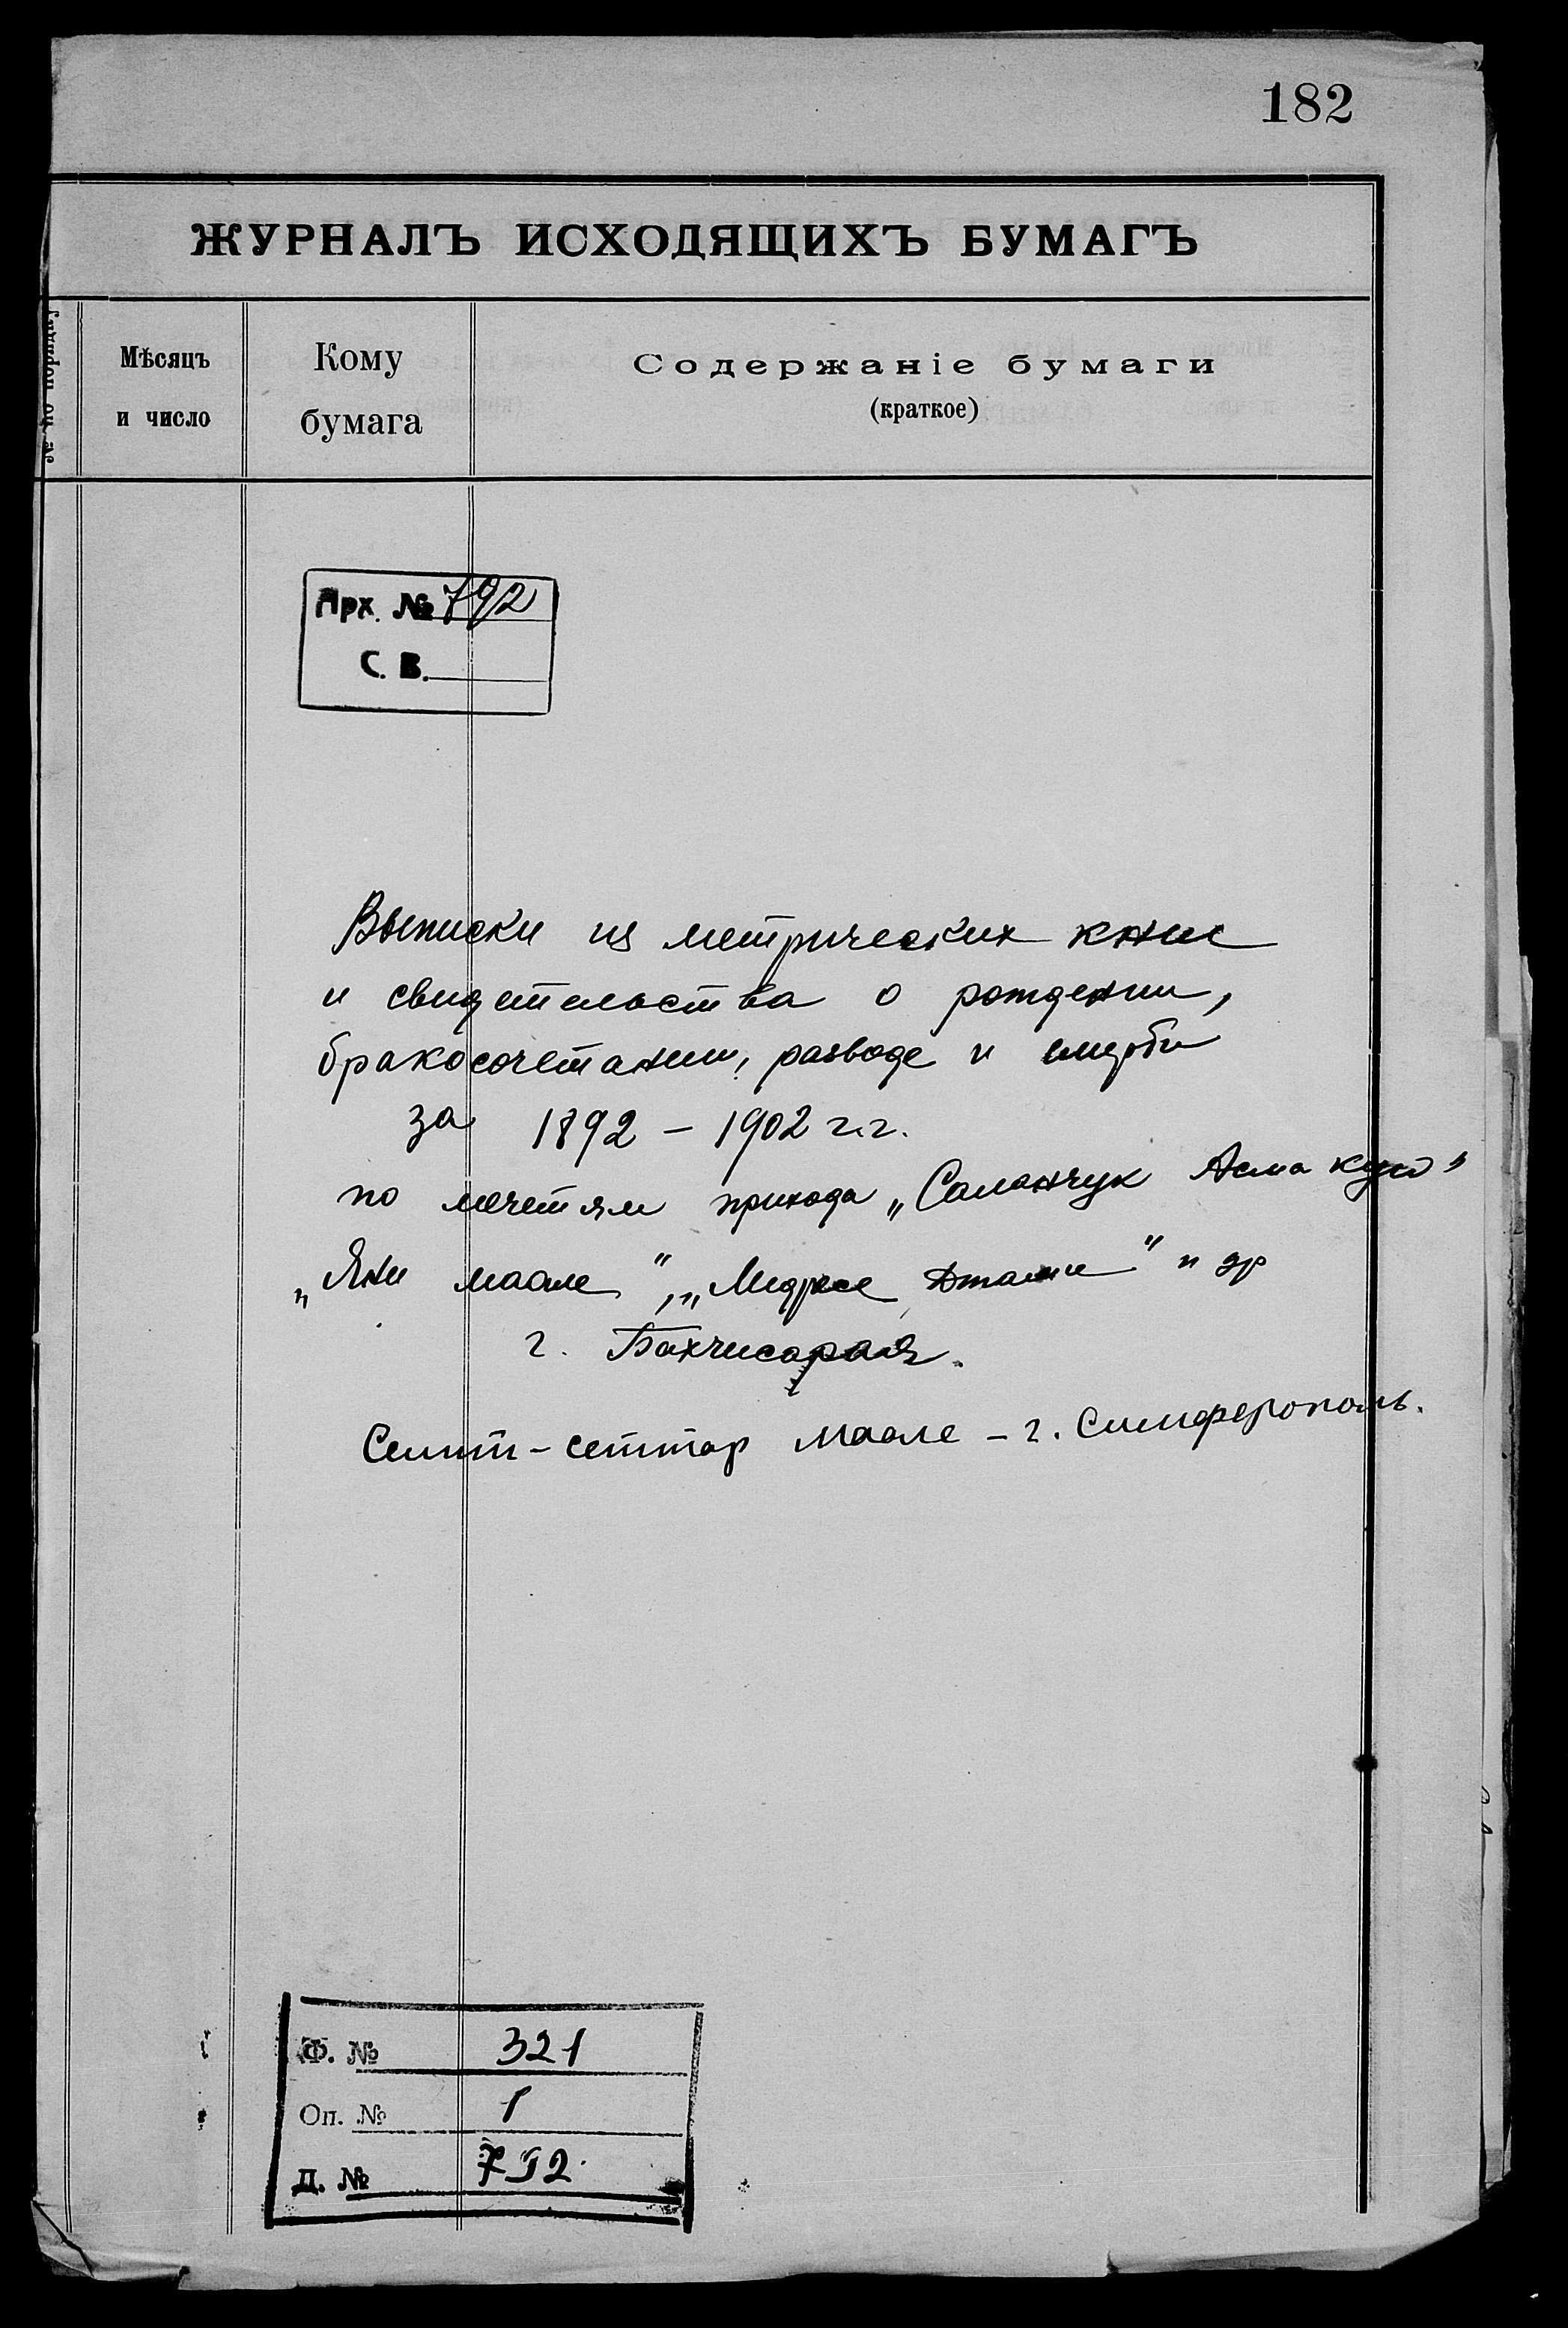 182
ЖУРНАЛЪ ИСХОДЯЩИХЪ БУМАГЪ
Мѣсяцъ
и число
Кому
бумага
Содержаніе бумаги
(краткое)
Арх. № 792
С. В.
Выписки из метрических книг
и свидетельства о рождении,
бракосочетании, разводе и смерти
за 1892 – 1902 г.г.
по мечетям прихода „Саланчук Асма кую"
„Яни маале", „Медресе Джами" и др
г. Бахчисарая.
Сеит-сеттар маале – г. Симферополь.
Ф. № 321
Оп. № 1
Д. № 792